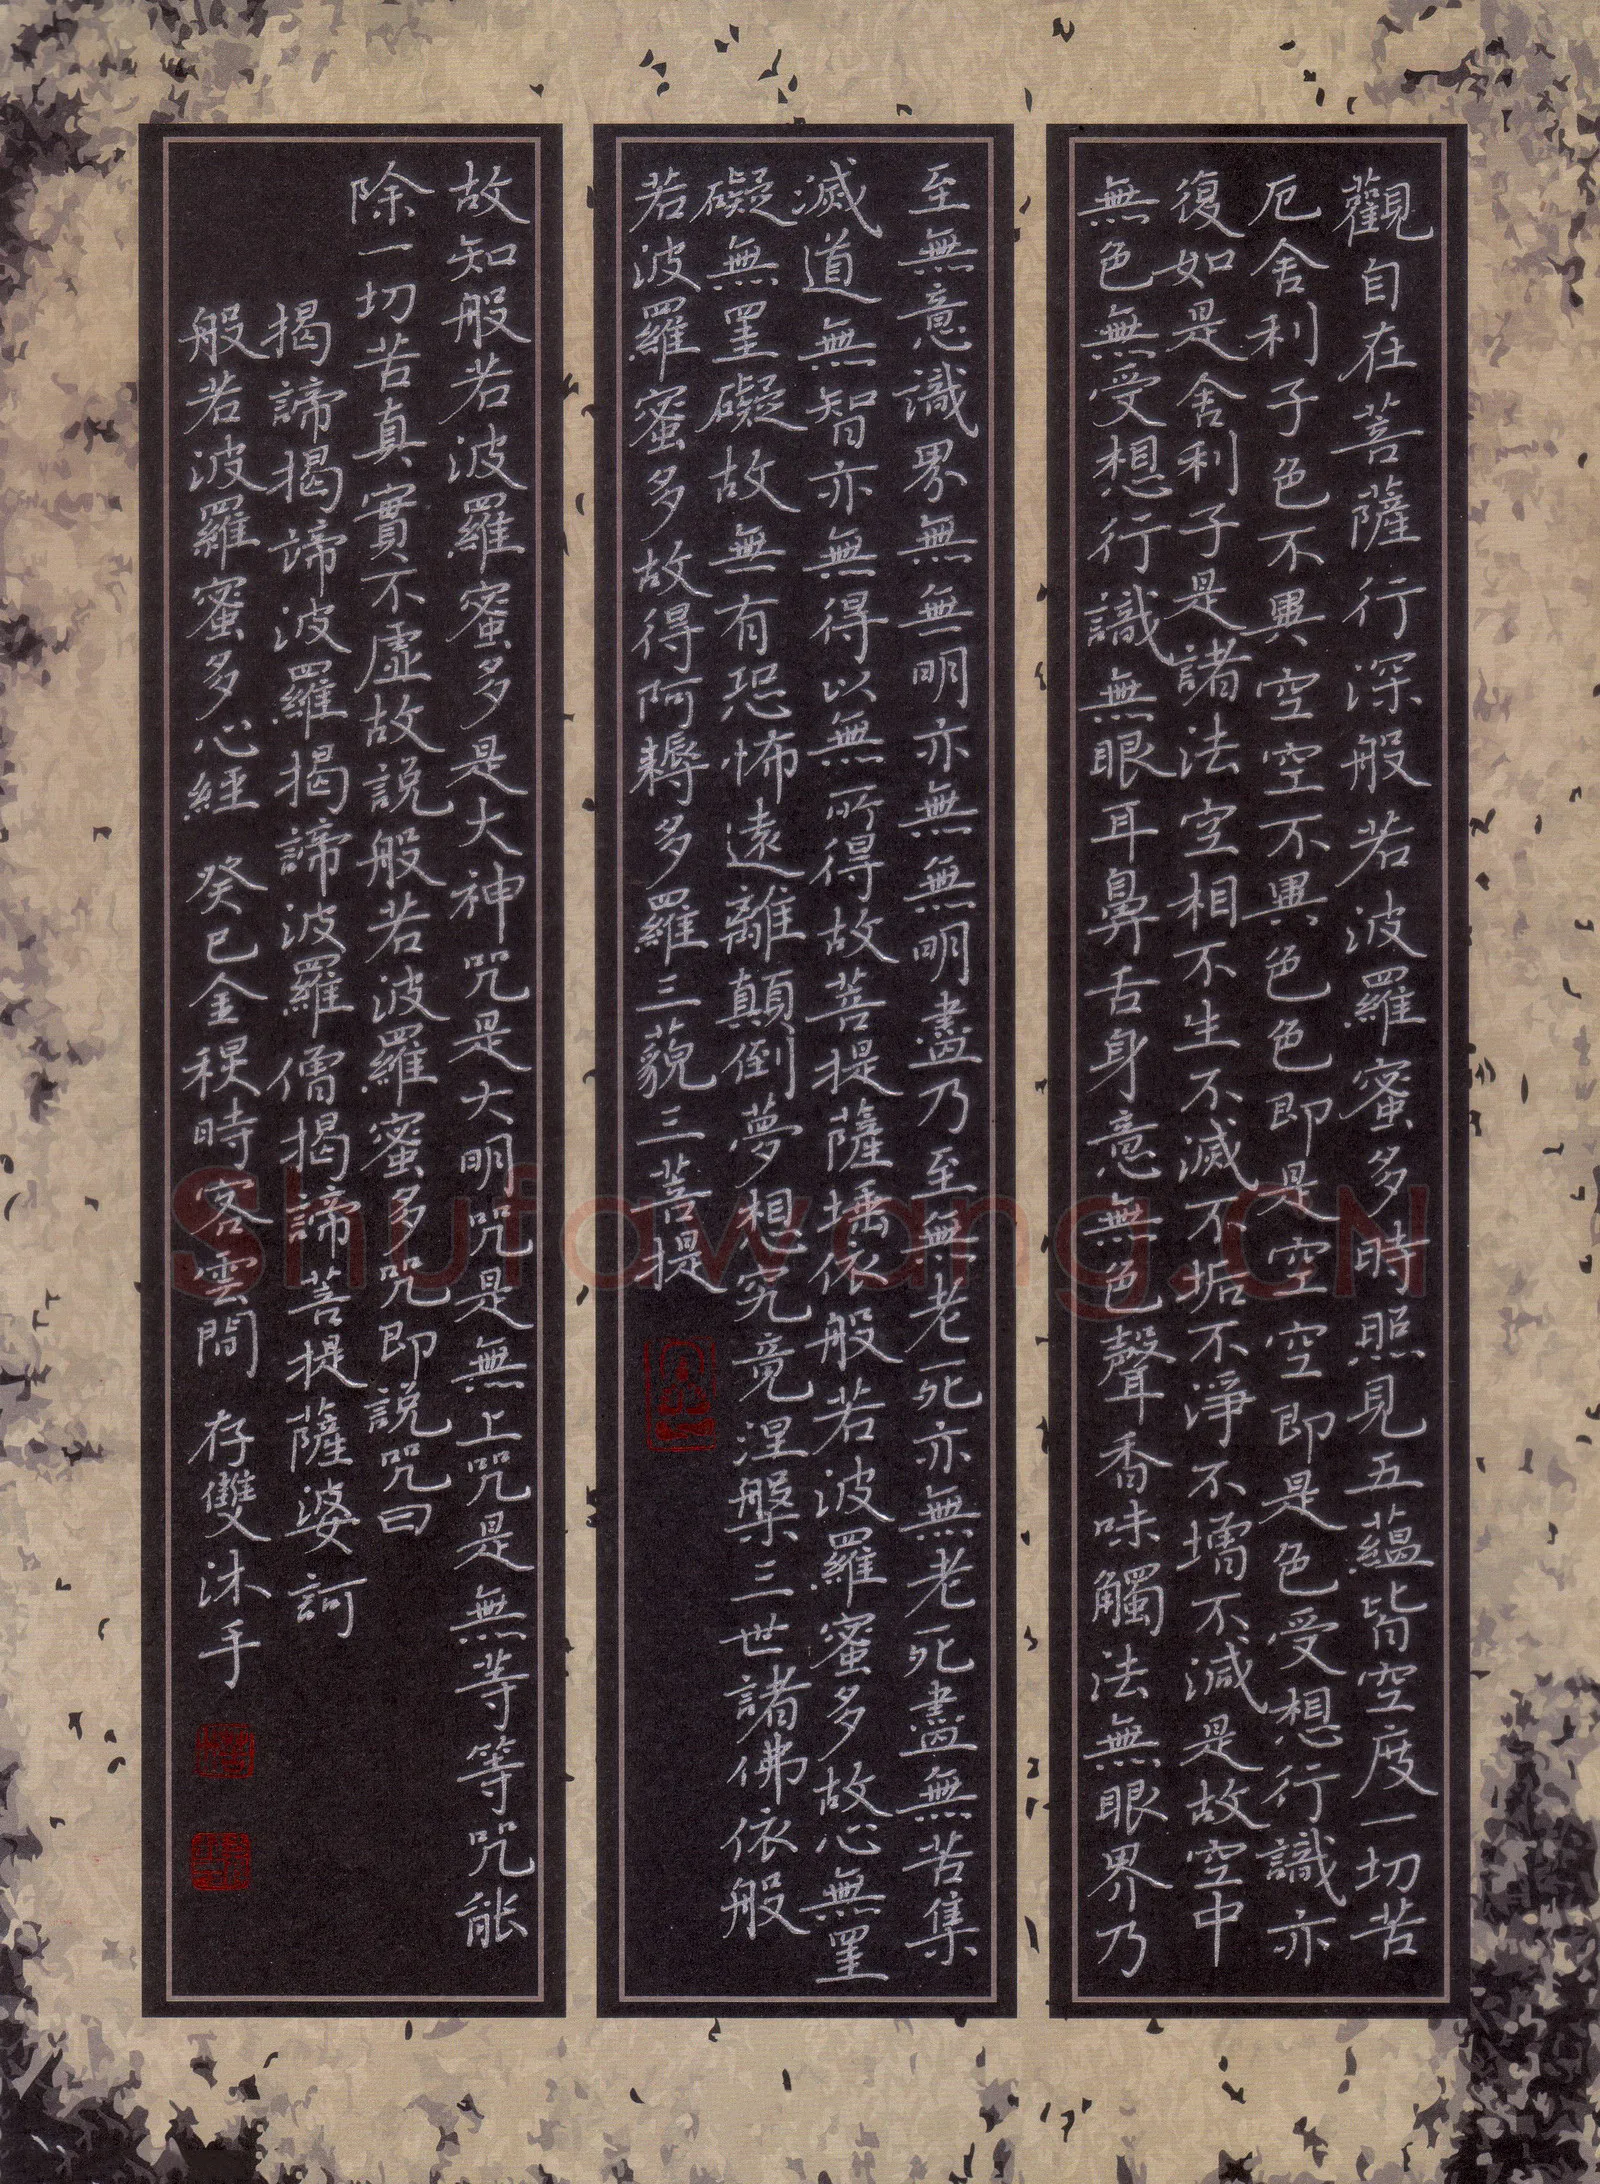 觀自在菩薩行深般若波羅蜜多時照見五蘊皆空度一切苦
厄舍利子色不異空空不異色色即是空空即是色受想行識亦
復如是舍利子是諸法空相不生不滅不垢不淨不增不減是故空中
無色無受想行識無眼耳鼻舌身意無色聲香味觸法無眼界乃
至無意識界無無明亦無無明盡乃至無老死亦無老死盡無苦集
滅道無智亦無得以無所得故菩提薩埵依般若波羅蜜多故心無罣
礙無罣礙故無有恐怖遠離顛倒夢想究竟涅槃三世諸佛依般
若波羅蜜多故得阿耨多羅三藐三菩提
故知般若波羅蜜多是大神咒是大明咒是無上咒是無等等咒能
除一切苦真實不虛故說般若波羅蜜多咒即說咒曰
揭諦揭諦波羅揭諦波羅僧揭諦菩提薩婆訶
般若波羅蜜多心經 癸巳金稷時客雲間 存雙沐手
Shufawang.CN